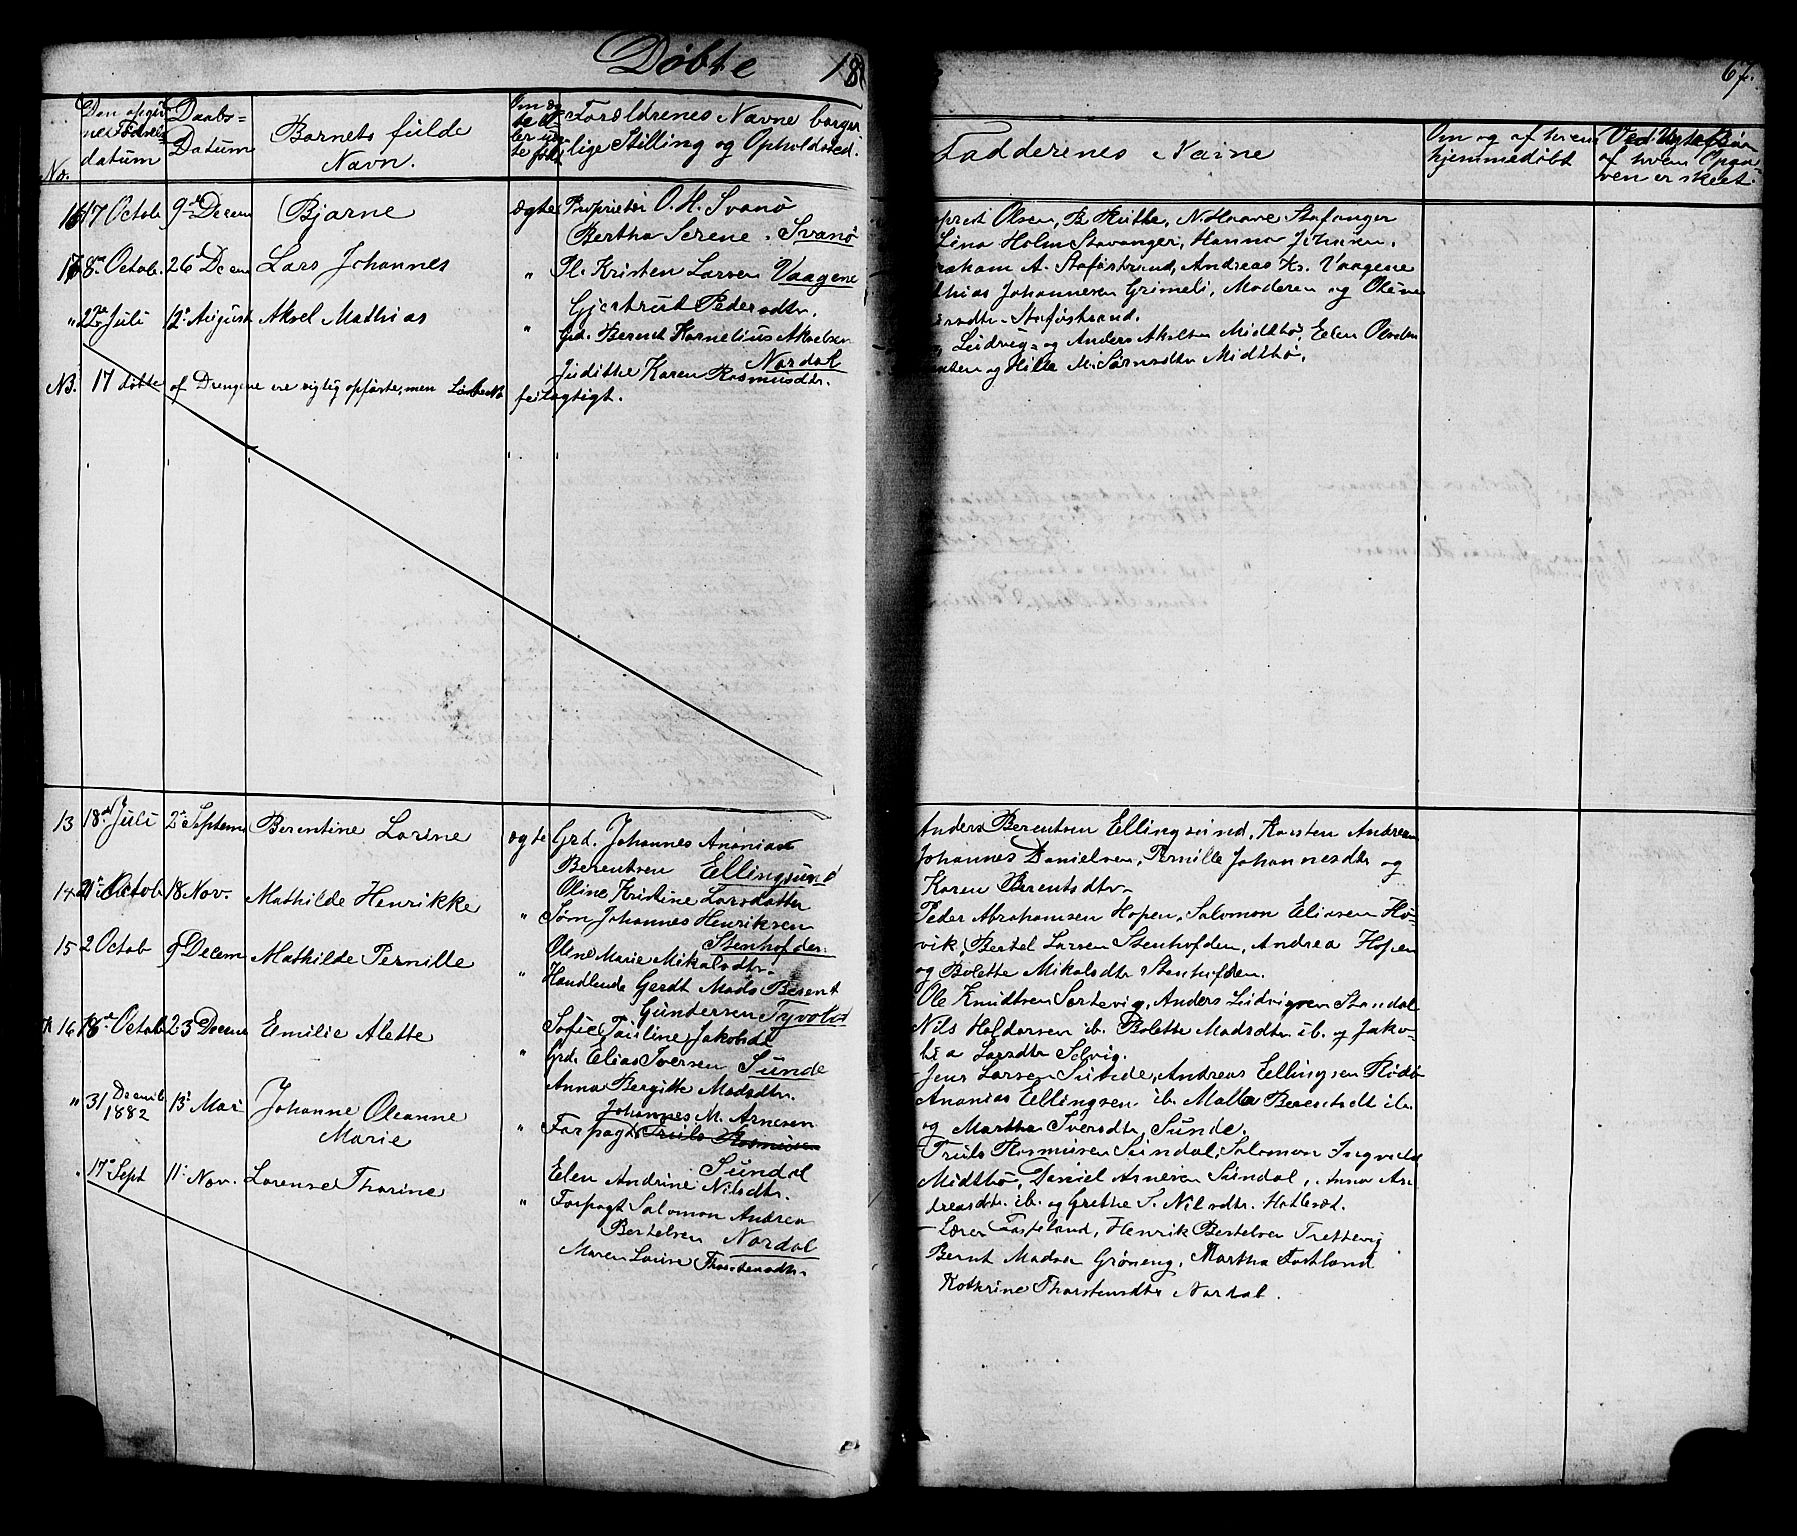 Døbte 18
67.
No.
Den opgiv
nes Fødsels
datum
Daabs=
Datum
Barnets fulde
Navn.
Om æg
te el
ler uæ
te født
Forældrenes Navne borger
lige Stilling og Opholdssted.
Fadderenes Navne
Om og af hvem
hjemmedøbt
af hvem Opga
ven er skeet.
17 Octob 9de Decem Bjarne ægte Proprietær O. H. Svanø
Bertha Serene. Svanø
Olsen, B. Hvitte, N. Haave Stafanger
Lina Holm Stavanger, Hanna Johnsen.
8de Octob. 26de Decem Lars Johannes " Pl. Kristen Larsen Vaagene
Gjertrud Pedersdtr.
A. Staføstrand, Andreas Kr. Vaagene
Johannesen Grimeli, Moderen og Oline
Staføstrand.
" 22de Juli 12te August Aksel Mathias " Grd. Berent Kornelius Akselsen
Nordal
Judithe Karen Rasmusdtr.
Ludvig og Anders Akselsen Midtbø, Elen Olsdtr
og Hille M. Sørnsdtr Midtbø,
NB. 17 døbte af Drengene ere rigtig opførte, men Løbe№ feilagtigt.
13 18de Juli 2de Septem Berentine Larine ægte Grd. Johannes Ananias
Berentsen Ellingsund
Oline Kristine Larsdatter
Anders Berentsen Ellingsund, Karsten Andreas
Johannes Danielsen, Pernille Johannesdtr og
Karen Berentsdtr
14 21de Octob 18 Nov. Mathilde Henrikke " Søm Johannes Henriksen
Stenhofden
Oline Marie Mikalsdtr.
Peder Abrahamsen Hopen, Salomon Eliasen Hø-
vik, Bertel Larsen Stenhofden, Andrea Hopen
og Bolette Mikalsdtr Stenhofden.
15 2 Octob 9 Decem Mathilde Pernille " Handlende Gerdt Mads Berent
Gundersen Tyvold
Sofie Pauline Jakobsdtr
Ole Knudtsen Sørtevig, Anders Ludvigsen Standal
Nils Haldorsen ib. Bolette Madsdtr ib. og Jako-
bia Larsdtr Solvig.
16 18de Octob 23 Decem Emilie Alette " Grd. Elias Iversen Sunde
Anna Bergitte Madsdtr.
Jens Larsen Sunde, Andreas Ellingsen Rødø
Ananias Ellingsen ib. Malla Berentsdt ib.
og Martha Iversdtr Sunde.
" 31 Decemb 1882 13de Mai Johanne Oleanne
Marie
Johannes M. Arnesen
" Forpagt. Truls Rasmusen
Sundal
Elen Andrine Nilsdtr.
Truls Rasmusen Sundal, Salomon Ingvald
Midtbø, Daniel Arnesen Sundal, Anna An-
dreasdtr. ib. og Grethe S. Nilsdtr. Hatleset.
" 17de Sept 11te Nov. Lorense Tharine " Forpagt Salomon Andrea
Bertelsen Nordal
Maren Louise Thorstensdtr.
Lærer Fasteland, Henrik Bertelsen Trettevig
Bernt Madsen Grøneng, Martha Fastland
Kathrine Thorstensdtr Nordal.